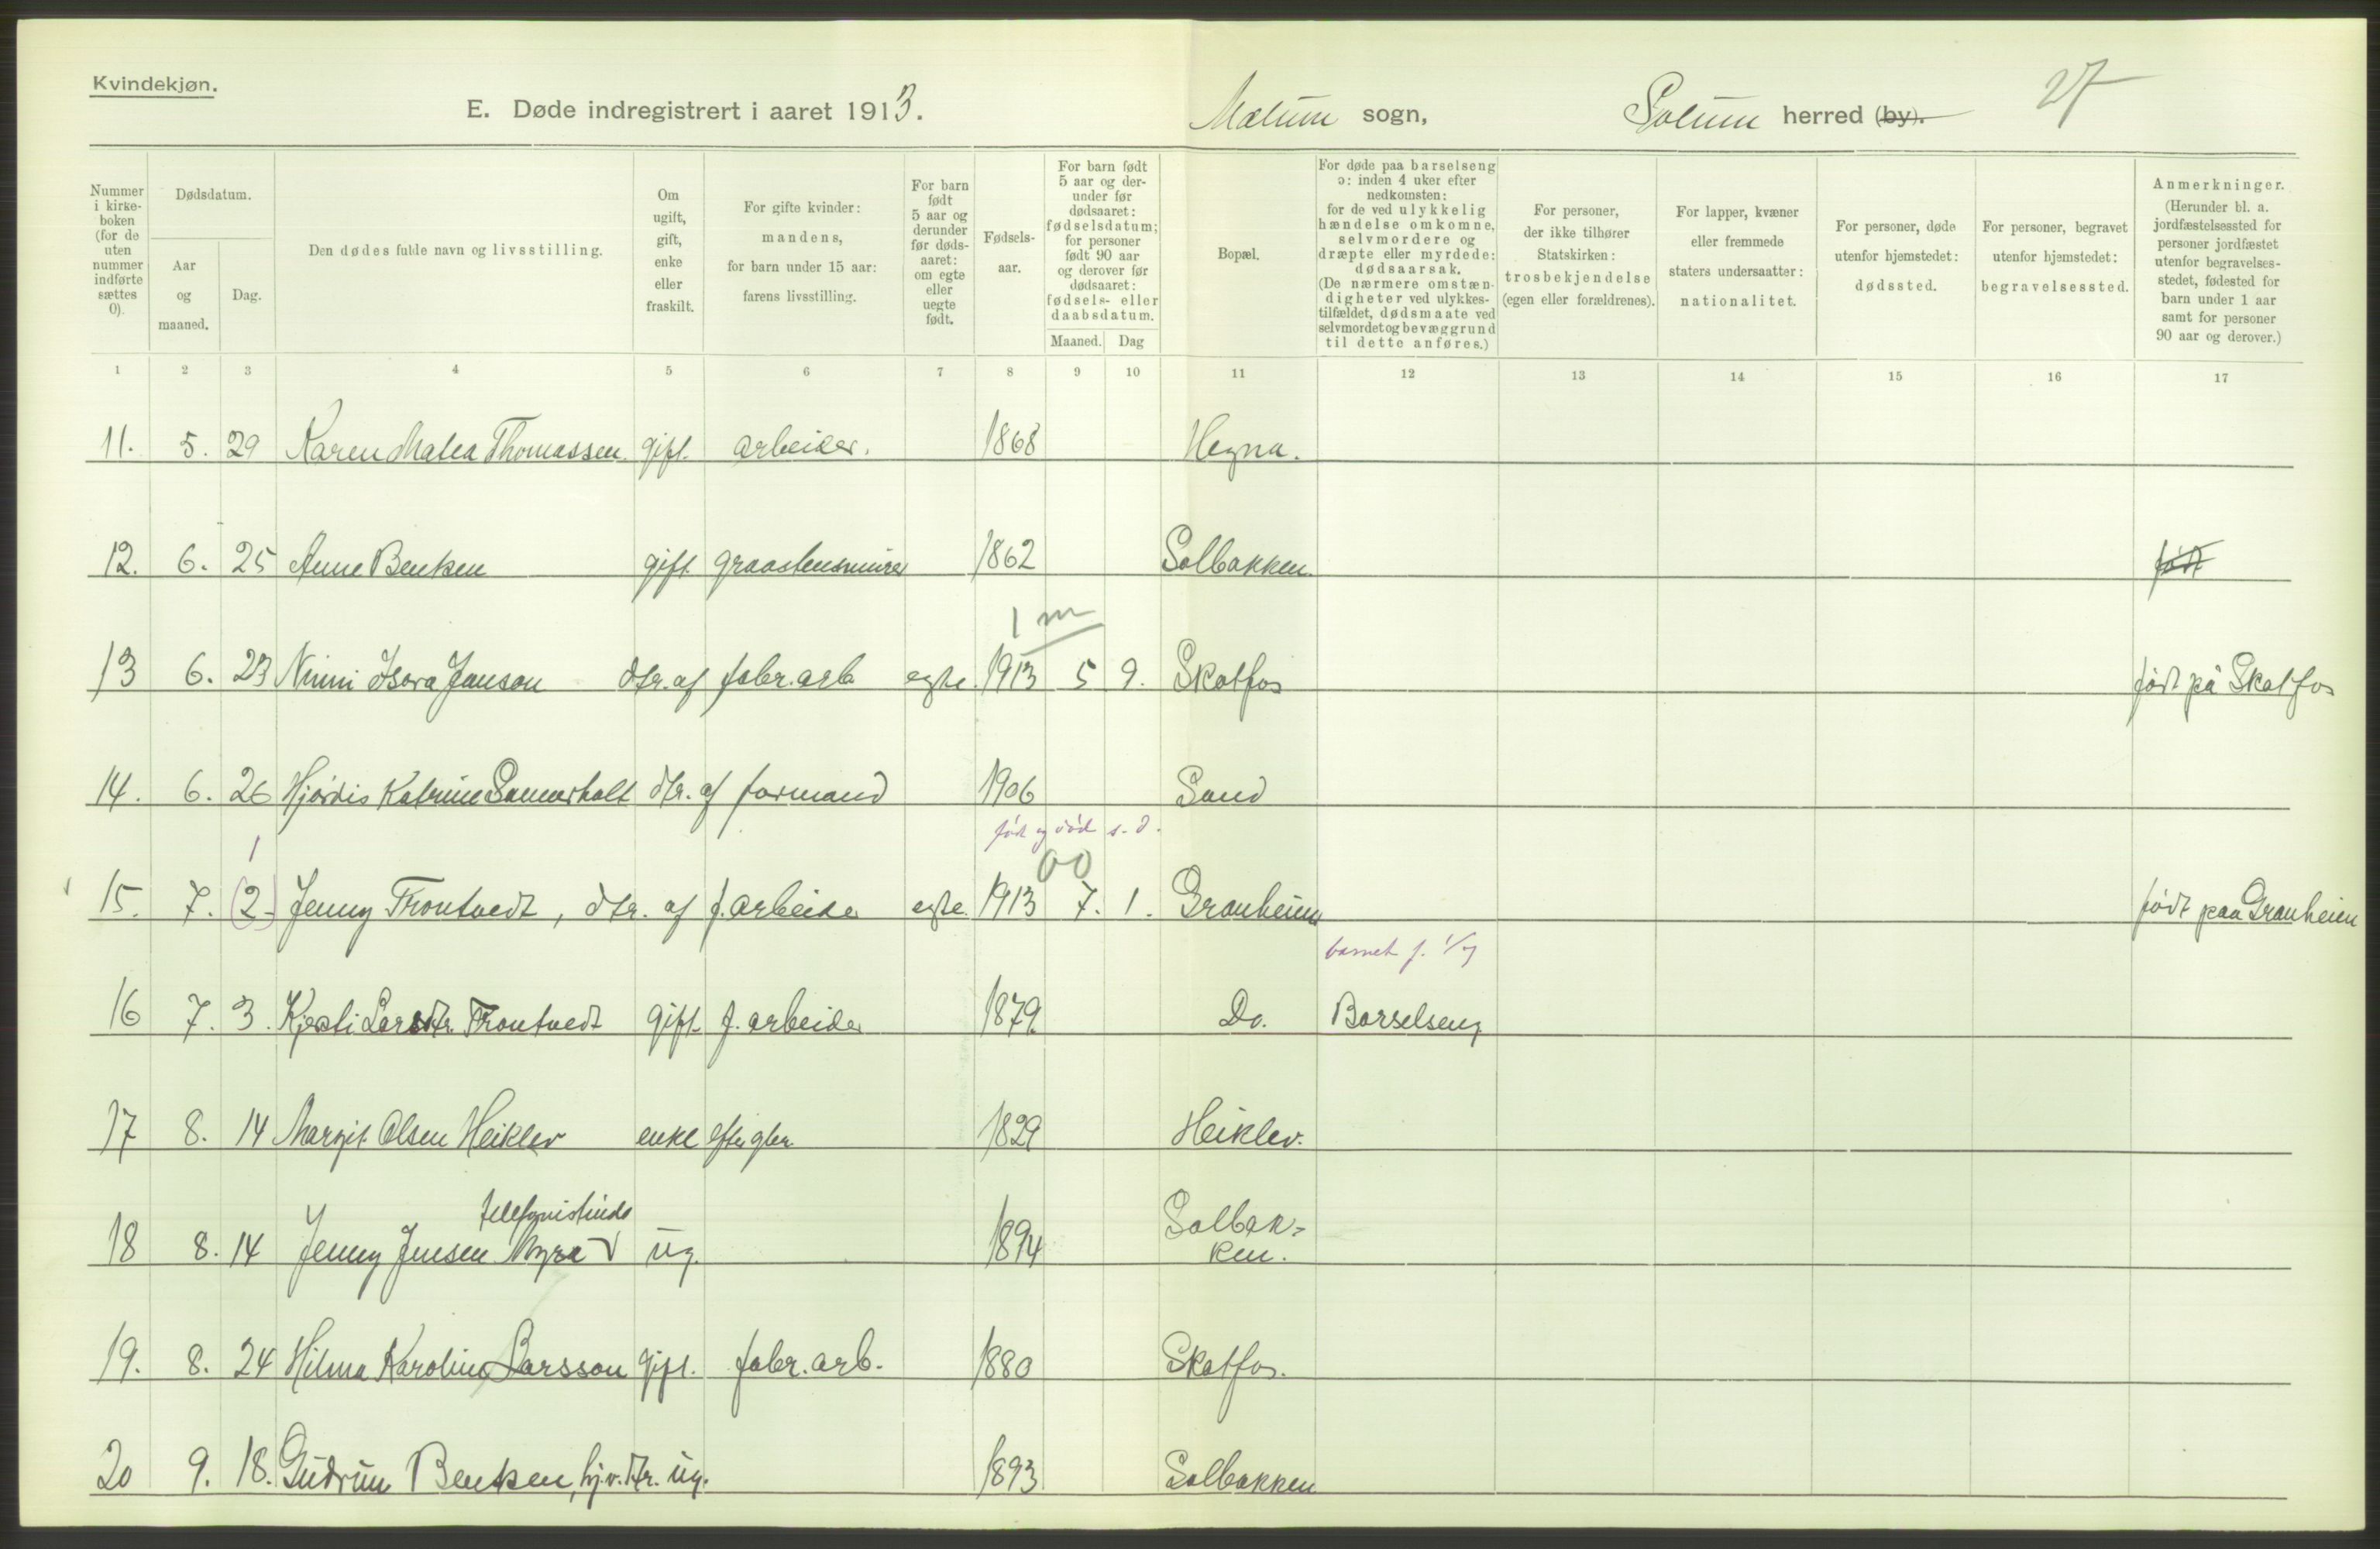 Kvindekjøn.
E. Døde indregistrert i aaret 1913.
Mælum sogn,
Solum herred (by).
27
Nummer i kirke-boken (for de uten nummer indførte sættes 0).
Dødsdatum.
Aar og maaned.
Dag.
Den dødes fulde navn og livsstilling.
Om ugift, gift, enke eller fraskilt.
For gifte kvinder: mandens, for barn under 15 aar: farens livsstilling.
For barn født 5 aar og derunder før døds-aaret: om egte eller uegte født.
Fødsels-aar.
For barn født 5 aar og der-under før dødsaaret: fødselsdatum; for personer født 90 aar og derover før dødsaaret: fødsels- eller daabsdatum.
Maaned.
Dag
Bopæl.
For døde paa barselseng ɔ: inden 4 uker efter nedkomsten: for de ved ulykkelig hændelse omkomne, selvmordere og dræpte eller myrdede: dødsaarsak. (De nærmere omstæn-digheter ved ulykkes-tilfældet, dødsmaate ved selvmordet og bevæggrund til dette anføres.)
For personer, der ikke tilhører Statskirken: trosbekjendelse (egen eller forældrenes).
For lapper, kvæner eller fremmede staters undersaatter: nationalitet.
For personer, døde utenfor hjemstedet: dødssted.
For personer, begravet utenfor hjemstedet: begravelsessted.
Anmerkninger. (Herunder bl. a. jordfæstelsessted for personer jordfæstet utenfor begravelses-stedet, fødested for barn under 1 aar samt for personer 90 aar og derover.)
1 2 3 4 5 6 7 8 9 10 11 12 13 14 15 16 17
11. 5. 29 Karen Malea Thomassen gift. arbeider. 1868 Hegna.
12. 6. 25 Anne Bentsen gift graastensmurer 1862 Solbakken født
1 m
13 6. 23 Ninni Isora Janson dtr. af fabr. arb egte. 1913 5 9. Skotfos født på Skotfos
14. 6. 26 Hjørdis Katrine dtr. af formand 1906 Sand
1 født og død s. d.
00
15. 7. (2) Jenny Trontvedt, dtr. af f. arbeider egte. 1913 7. 1. Granheim født paa Granheim
barnet f. 1/7
16 7. 3. Kjersti Larsdtr. Trontvedt gift f. arbeider 1879 Do. Barselseng
17 8. 14 Margit Olsen Heiklev enke efter gbr. 1829 Heiklev.
telefonistinde
18 8. 14 Jenny Jensen Myra ug. 1894 Solbak-
ken.
19. 8. 24 Hilma Karolina Larsson gift. fabr. arb. 1880 Skotfos.
20 9. 18. Gudrun Bentsen, hj.v. dtr. ug. 1893 Solbakken